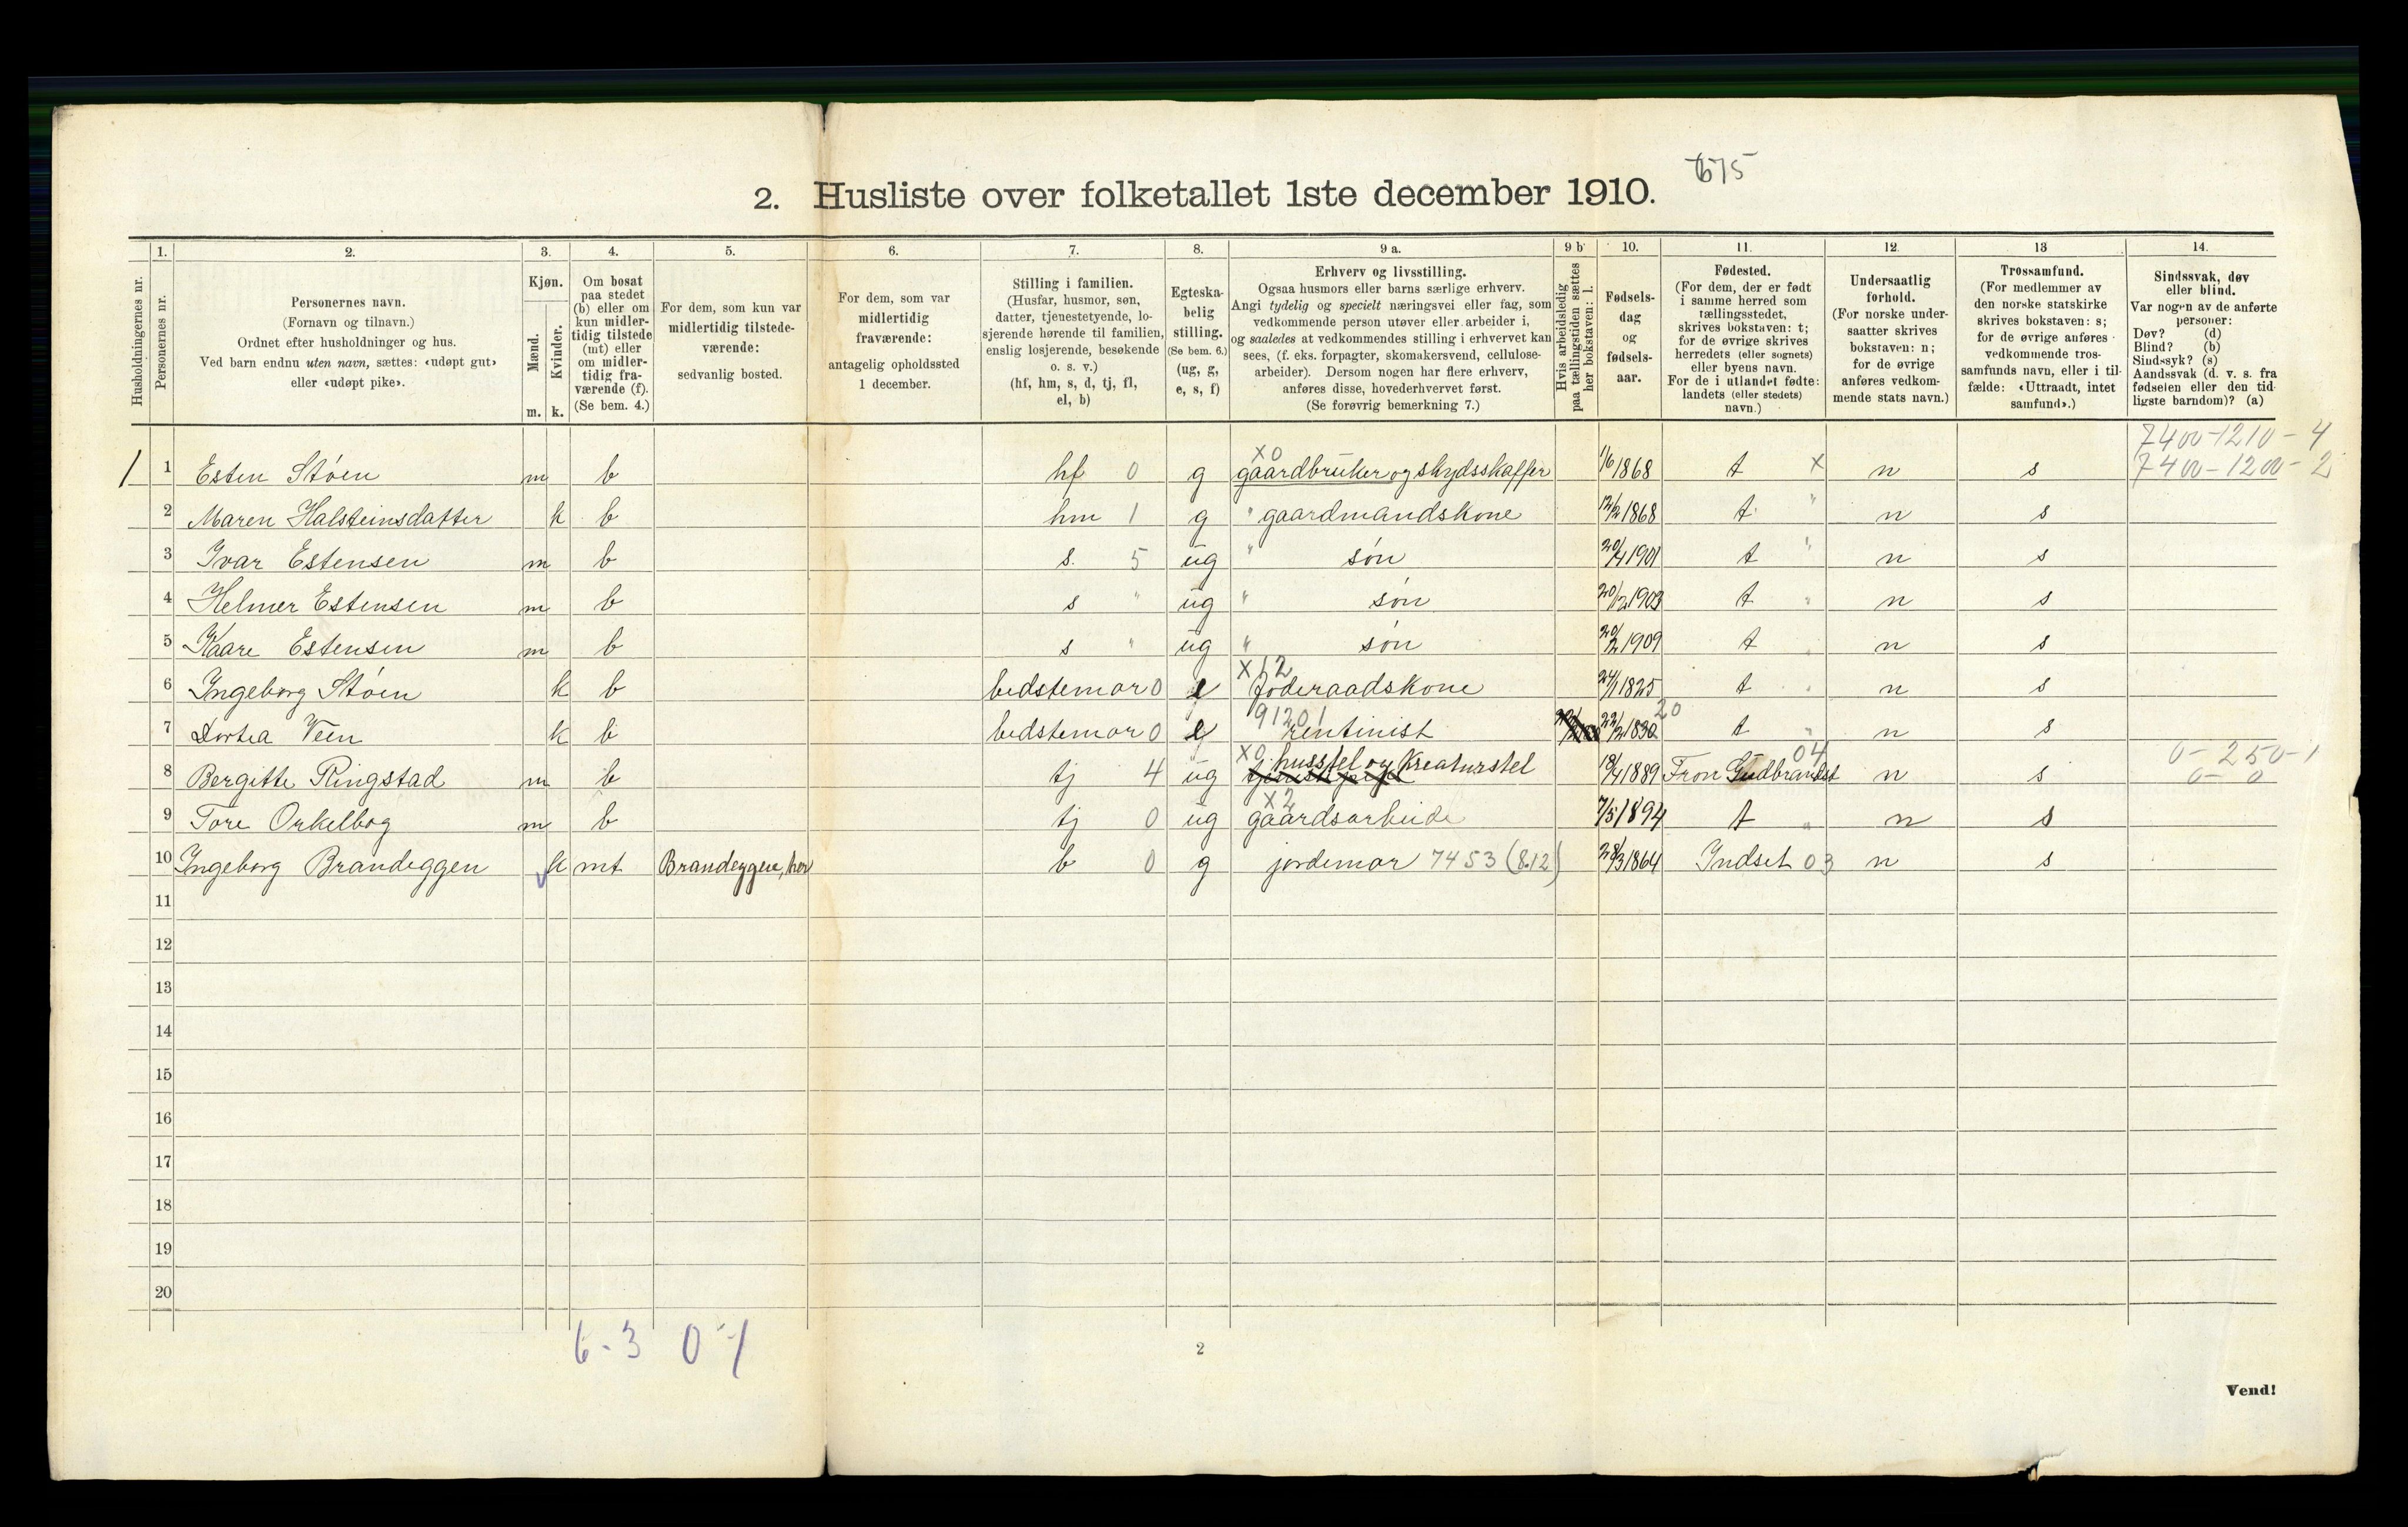 675
2. Husliste over folketallet 1ste december 1910.
1. 2. 3. 4. 5. 6. 7. 8. 9 a. 9 b 10. 11. 12. 13 14.
Husholdningernes nr.
Personernes nr.
Personernes navn.
(Fornavn og tilnavn.)
Ordnet efter husholdninger og hus.
Ved barn endnu uten navn, sættes: «udøpt gut»
eller «udøpt pike».
Kjøn.
Mænd.
Kvinder.
m. k.
Om bosat
paa stedet
(b) eller om
kun midler-
tidig tilstede
(mt) eller
om midler-
tidig fra-
værende (f).
(Se bem. 4.)
For dem, som kun var
midlertidig tilstede-
værende:
sedvanlig bosted.
For dem, som var
midlertidig
fraværende:
antagelig opholdssted
1 december.
Stilling i familien.
(Husfar, husmor, søn,
datter, tjenestetyende, lo-
sjerende hørende til familien,
enslig losjerende, besøkende
o. s. v.)
(hf, hm, s, d, tj, fl,
el, b)
Egteska-
belig
stilling.
(Se bem. 6.)
(ug, g,
e, s, f)
Erhverv og livsstilling.
Ogsaa husmors eller barns særlige erhverv.
Angi tydelig og specielt næringsvei eller fag, som
vedkommende person utøver eller arbeider i,
og saaledes at vedkommendes stilling i erhvervet kan
sees, (f. eks. forpagter, skomakersvend, cellulose-
arbeider). Dersom nogen har flere erhverv,
anføres disse, hovederhvervet først.
(Se forøvrig bemerkning 7.)
Hvis arbeidsledig
paa tællingstiden sættes
her bokstaven: l.
Fødsels-
dag
og
fødsels-
aar.
Fødested.
(For dem, der er født
i samme herred som
tællingsstedet,
skrives bokstaven: t;
for de øvrige skrives
herredets (eller sognets)
eller byens navn.
For de i utlandet fødte:
landets (eller stedets)
navn.)
Undersaatlig
forhold.
(For norske under-
saatter skrives
bokstaven: n;
for de øvrige
anføres vedkom-
mende stats navn.)
Trossamfund.
(For medlemmer av
den norske statskirke
skrives bokstaven: s;
for de øvrige anføres
vedkommende tros-
samfunds navn, eller i til-
fælde: «Uttraadt, intet
samfund».)
Sindssvak, døv
eller blind.
Var nogen av de anførte
personer:
Døv? (d)
Blind? (b)
Sindssyk? (s)
Aandssvak (d. v. s. fra
fødselen eller den tid-
ligste barndom)? (a)
7400-1210-4
X0
1 1 Esten Støen m b hf 0 g gaardbruker og skydsskaffer 1/6 1868 t X n s 7400-1200-2
2 Maren Halsteinsdatter k b hm 1 g " gaardmandskone 12/2 1868 t " n s
3 Ivar Estensen m b s. 5 ug " søn 20/4 1901 t " n s
4 Helmer Estensen m b s " ug " søn 20/2 1903 t " n s
5 Kaare Estensen m b s " ug " søn 20/2 1909 t " n s
X 12
6 Ingeborg Støen k b bedstemor 0 e føderaadskone 24/1 1825 t " n s
9120 1 20
7 Dortea Veen k b bedstemor 0 e rentinist 22/2 1830 t " n s
X0 husstel og kreaturstel 04 0-250-1
8 Bergitte Ringstad m b tj 4 ug 18/4 1889 Fron Gudbrandst n s 0-0
X2
9 Tore Orkelbog m b tj 0 ug gaardsarbeide 7/5 1894 t " n s
10 Ingeborg Brandeggen k mt Brandeggen, her b 0 g jordemor 7453 (812) 28/3 1864 Indset 03 n s
11
12
13
14
15
16
17
18
19
20
6-3 0-1
2
Vend!